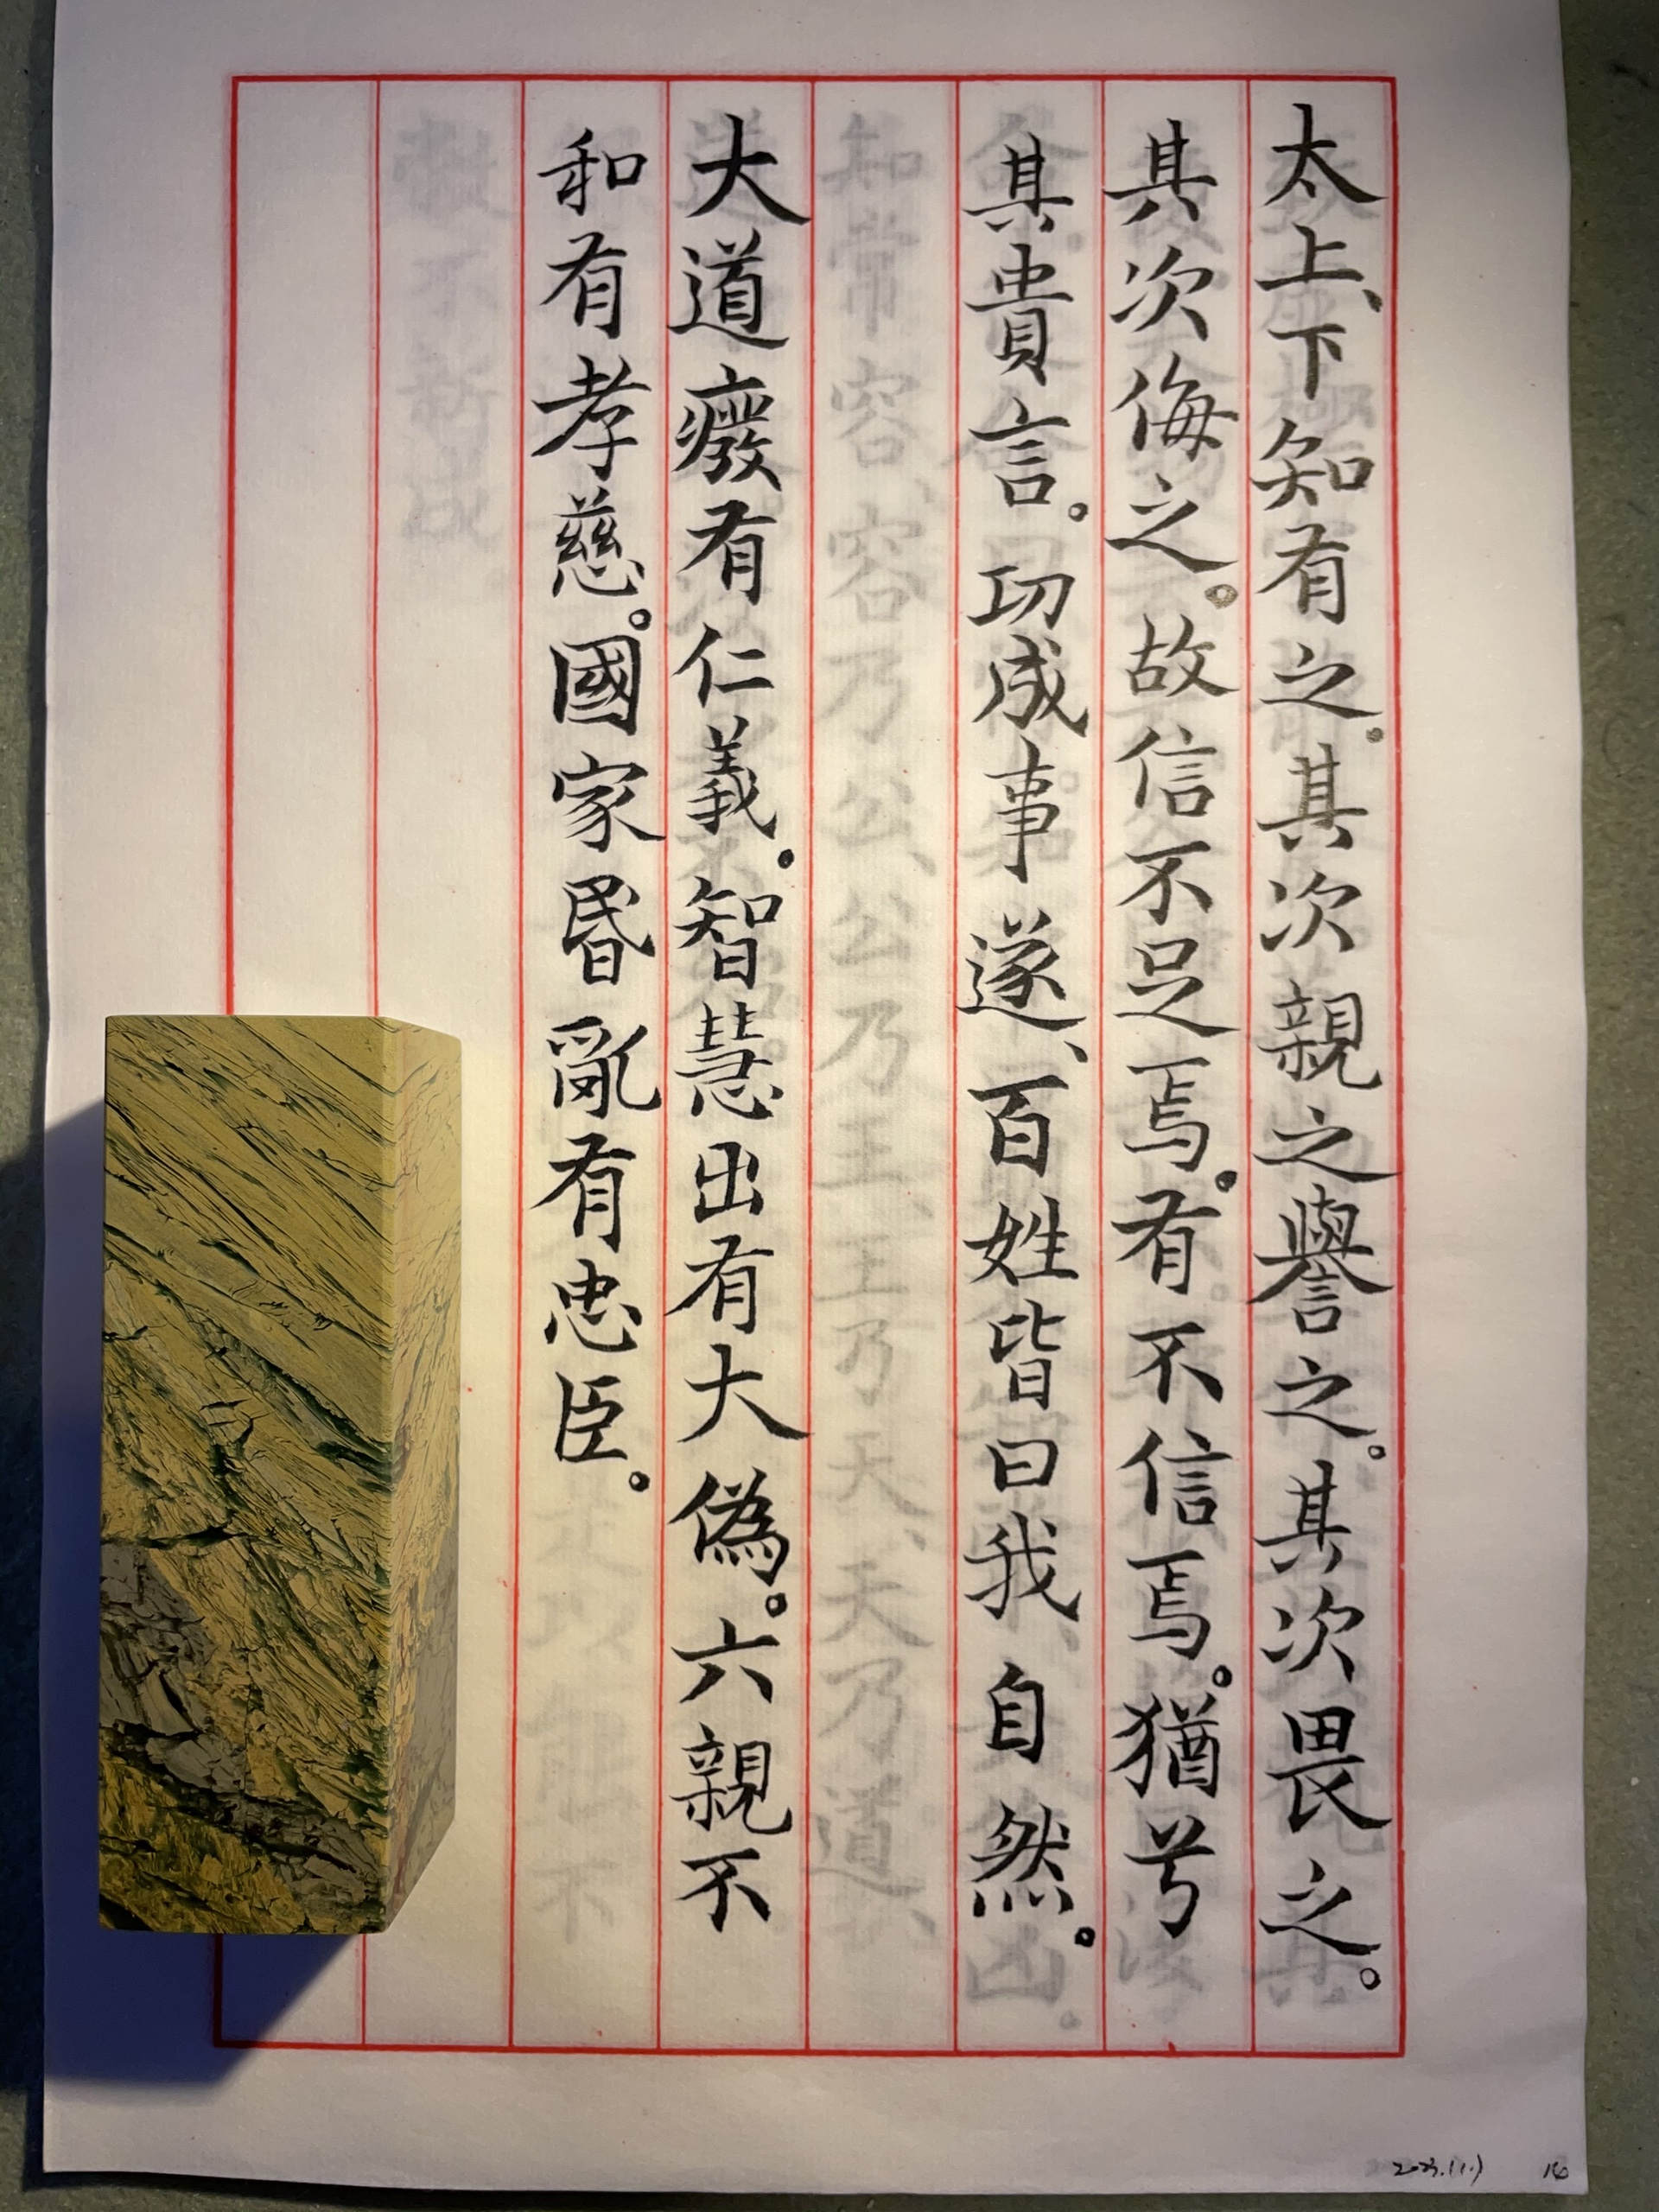 太上、下知有之。其次親之譽之。其次畏之。
其次侮之。故信不足焉。有不信焉。猶兮
其貴言。功成事遂、百姓皆曰我自然。
大道癈有仁義。智慧出有大偽。六親不
和有孝慈。國家昬亂有忠臣。